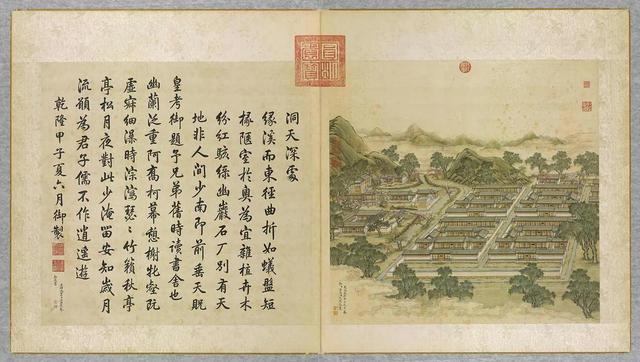 圓明園寶
洞天深處
緣溪而東徑曲折如蟻盤短
椽陋室於奧為宜雜植卉木
紛紅駭綠幽巖石厂別有天
地非人間少南即前垂天貺
皇考御題予兄弟舊時讀書舍也
幽蘭泛重阿喬柯幕憩榭牝壑既
虛寂細瀑時淙瀉瑟〻竹籟秋亭
亭松月夜對此少淹留安知歲月
流願為君子儒不作逍遙遊
乾隆甲子夏六月御製